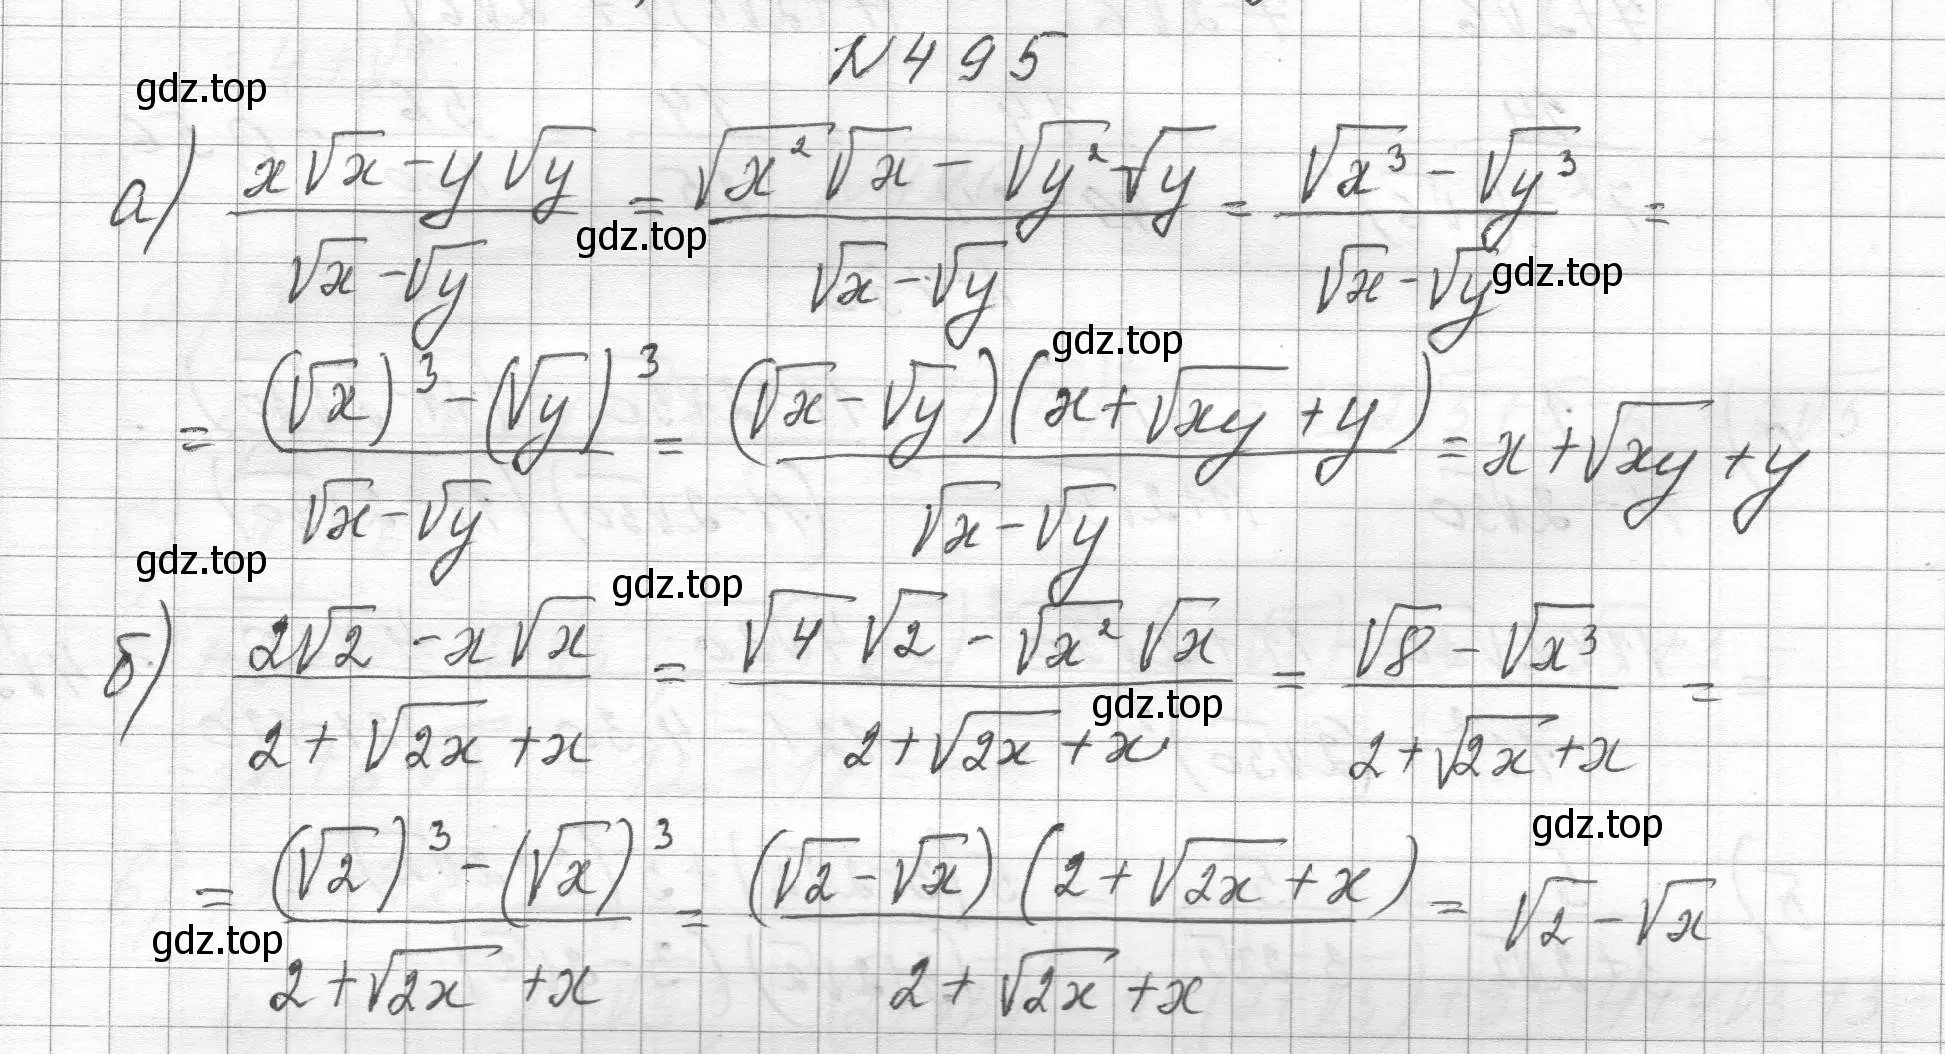 N 495
gdz.top
а) (x√x - y√y)/(√x - √y) = (√x²√x - √y²√y)/(√x - √y) = (√x³ - √y³)/(√x - √y) =
gdz.top
gdz.top
gdz.top
= ((√x)³ - (√y)³)/(√x - √y) = ((√x - √y)(x + √xy + y))/(√x - √y) = x + √xy + y
gdz.top
gdz.top
б) (2√2 - x√x)/(2 + √2x + x) = (√4√2 - √x²√x)/(2 + √2x + x) = (√8 - √x³)/(2 + √2x + x) =
gdz.top
gdz.top
= ((√2)³ - (√x)³)/(2 + √2x + x) = ((√2 - √x)(2 + √2x + x))/(2 + √2x + x) = √2 - √x
gdz.top